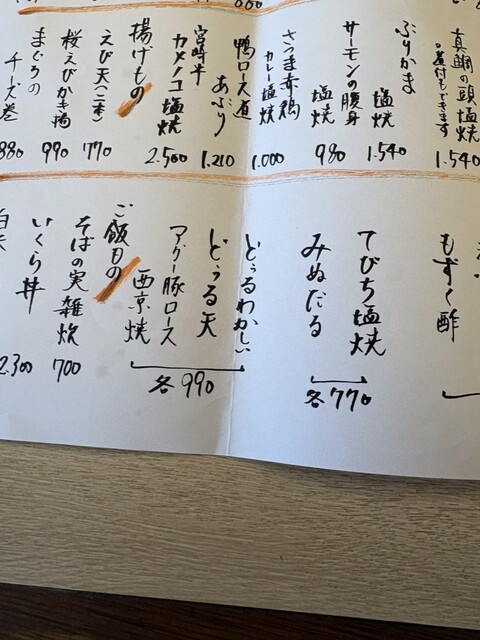 真鯛の頭塩焼
煮付もできます
1.540
ぶりかま
塩焼
1.540
サーモンの腹身
塩焼
980
さつま赤鶏
カレー塩焼
1.000
鴨ロース直
あぶり
1.210
宮崎牛
カメノコ塩焼
2.500
揚げもの
えび天(二本)
770
桜えびかき揚
990
まぐろの
チーズ巻
880
もずく酢
てびち塩焼
みぬだる
各770
どぅるわかしい
どぅる天
アグー豚ロース
西京焼
各990
ご飯もの
そばの実雑炊
700
いくら丼
2.300